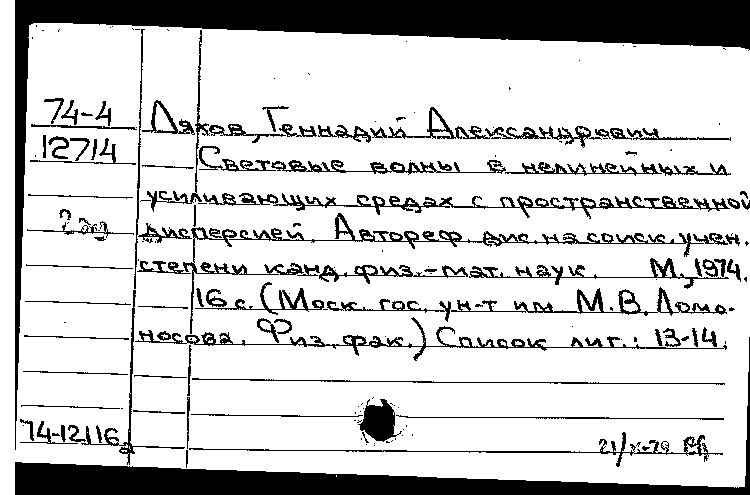 74-4 Ляхов, Геннадий Александрович
12714 Световые волны в нелинейных и
усиливающих средах с пространственной
дисперсией. Автореф. дис. на соиск. учен.
степени канд. физ.-мат. наук. М., 1974.
16 с. (Моск. гос. ун-т им М.В. Ломо-
носова. Физ. фак.) Список лит.: 13-14.
74-12116а